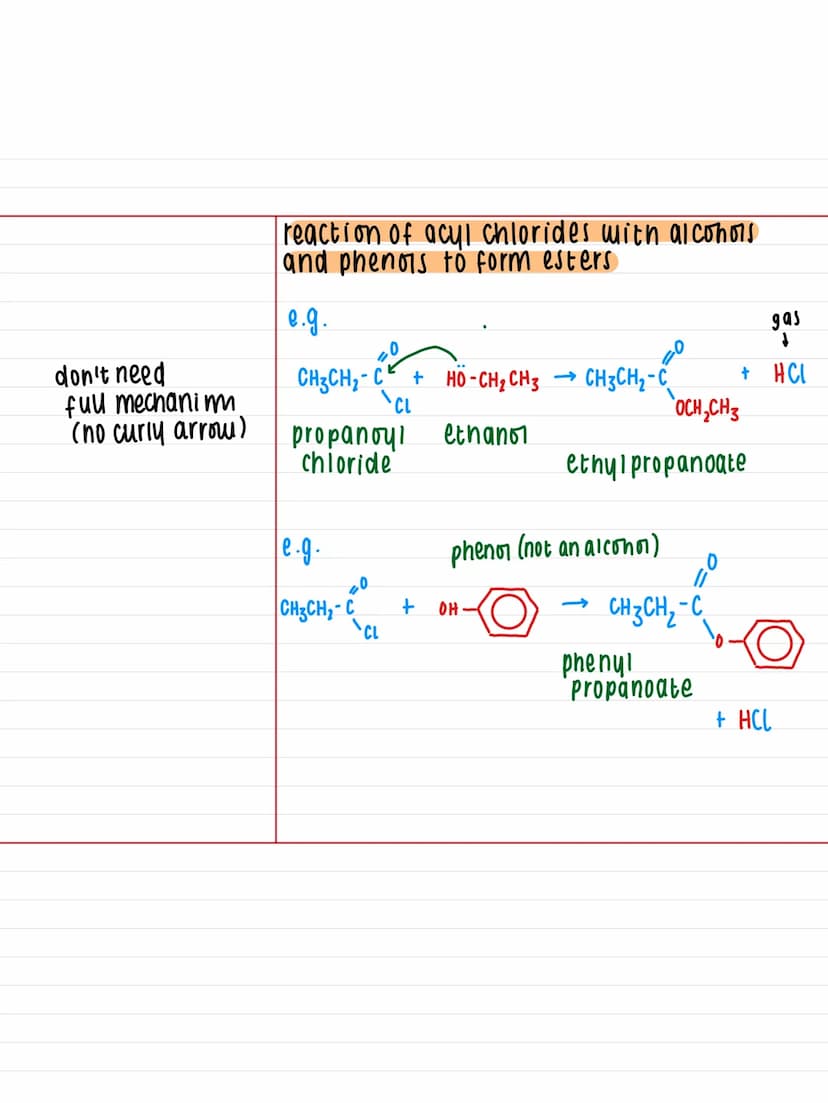 reaction of acyl chlorides with alcohols
and phenols to form esters
e.g.
gas
↓
O
O
don't need
full mechanism
(no curly arrow)
CH₃CH₂-C + HÖ-CH₂CH₃ → CH₃CH₂-C + HCl
Cl
OCH₂CH₃
propanoyl
chloride
ethanol
ethyl propanoate
e.g.
phenol (not an alcohol)
O
O
CH₃CH₂-C + OH- → CH₃CH₂-C
Cl
O-
phenyl
propanoate
+ HCl